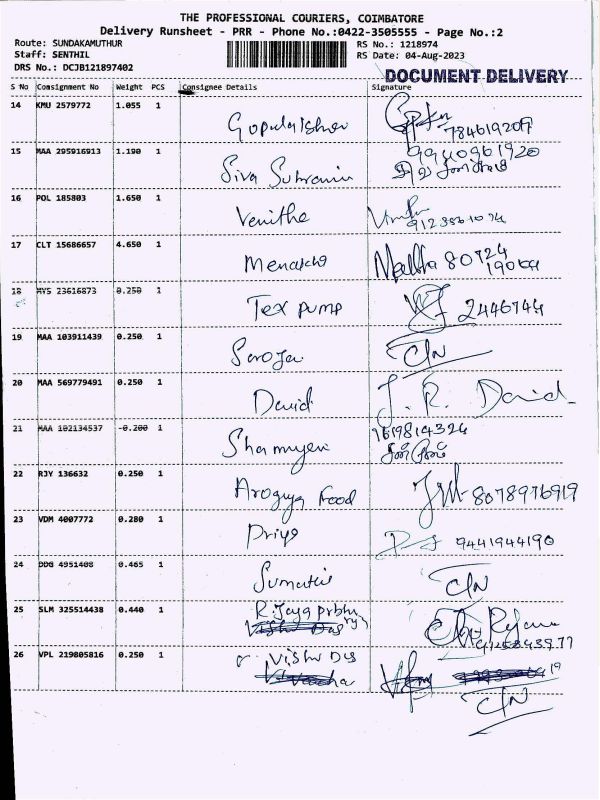 THE PROFESSIONAL COURIERS, COIMBATORE
Delivery Runsheet - PRR - Phone No.:0422-3505555 - Page No.:2
Route: SUNDAKAMUTHUR
Staff: SENTHIL
DRS No.: DCJB121897402
RS No.: 1218974
RS Date: 04-Aug-2023
DOCUMENT DELIVERY
S No Consignment No Weight PCS Consignee Details Signature
14 KMU 2579772 1.055 1
15 MAA 295916913 1.190 1 Siva
9940961920
16 POL 185803 1.650 1 Venitha
17 CLT 15686657 4.650 1 Menakha 80724
19064
18 MYS 23616873 0.250 1 Tex pump 2446744
19 MAA 103911439 0.250 1 Saroja C/N
20 MAA 569779491 0.250 1 David J. R. David
21 MAA 102134537 0.200 1
22 RJY 136632 0.250 1 Arogya Food 8078976919
23 VDM 4007772 0.280 1 Priya 9441944190
24 DDG 4951408 0.465 1 Sumathi C/N
25 SLM 325514438 0.440 1 R Jaya prbhu
26 VPL 219805816 0.250 1 Vishu Das
C/N